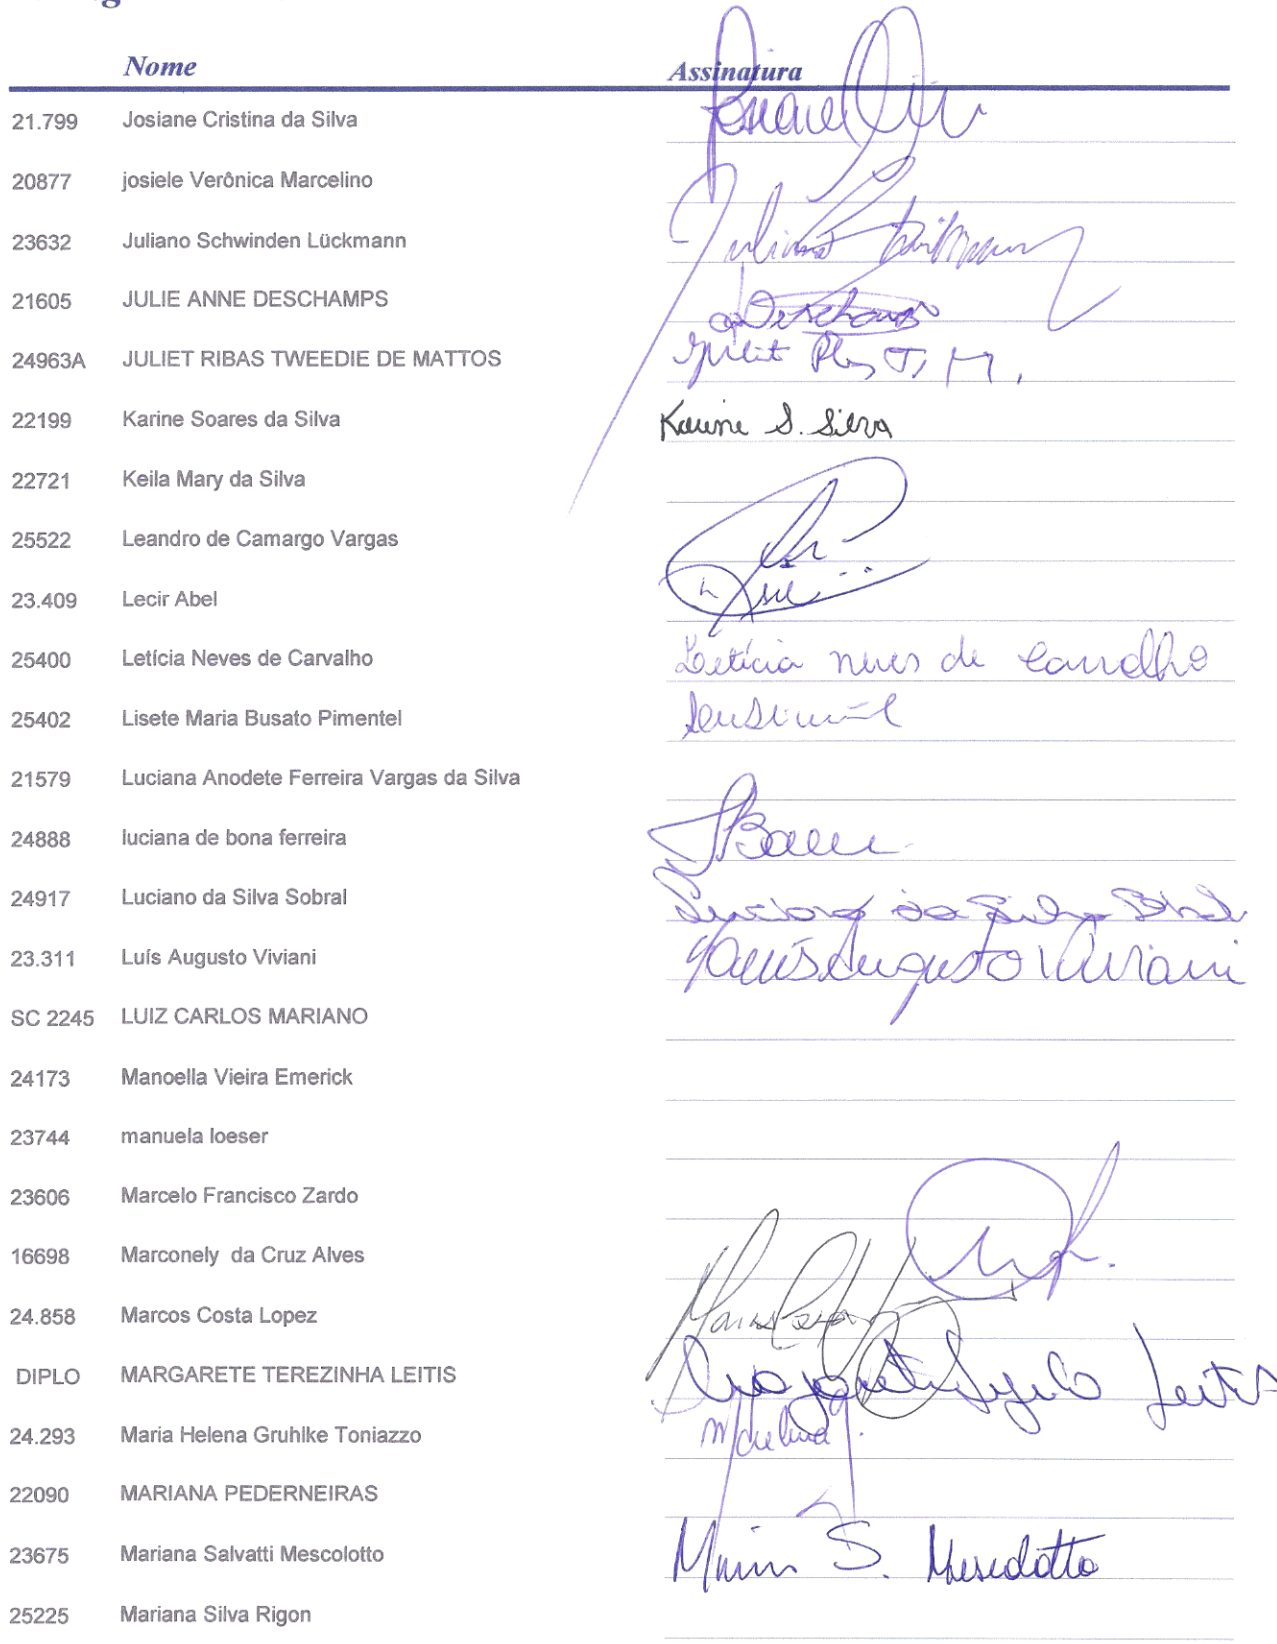 Nome Assinatura
21.799 Josiane Cristina da Silva
20877 josiele Verônica Marcelino
23632 Juliano Schwinden Lückmann
21605 JULIE ANNE DESCHAMPS
24963A JULIET RIBAS TWEEDIE DE MATTOS
22199 Karine Soares da Silva Karine S. Silva
22721 Keila Mary da Silva
25522 Leandro de Camargo Vargas
23.409 Lecir Abel
25400 Letícia Neves de Carvalho Letícia neves de Carvalho
25402 Lisete Maria Busato Pimentel
21579 Luciana Anodete Ferreira Vargas da Silva
24888 luciana de bona ferreira
24917 Luciano da Silva Sobral Luciano da Silva Sobral
23.311 Luís Augusto Viviani Luís Augusto Viviani
SC 2245 LUIZ CARLOS MARIANO
24173 Manoella Vieira Emerick
23744 manuela loeser
23606 Marcelo Francisco Zardo
16698 Marconely da Cruz Alves
24.858 Marcos Costa Lopez
DIPLO MARGARETE TEREZINHA LEITIS
24.293 Maria Helena Gruhlke Toniazzo
22090 MARIANA PEDERNEIRAS
23675 Mariana Salvatti Mescolotto S. Mescolotto
25225 Mariana Silva Rigon